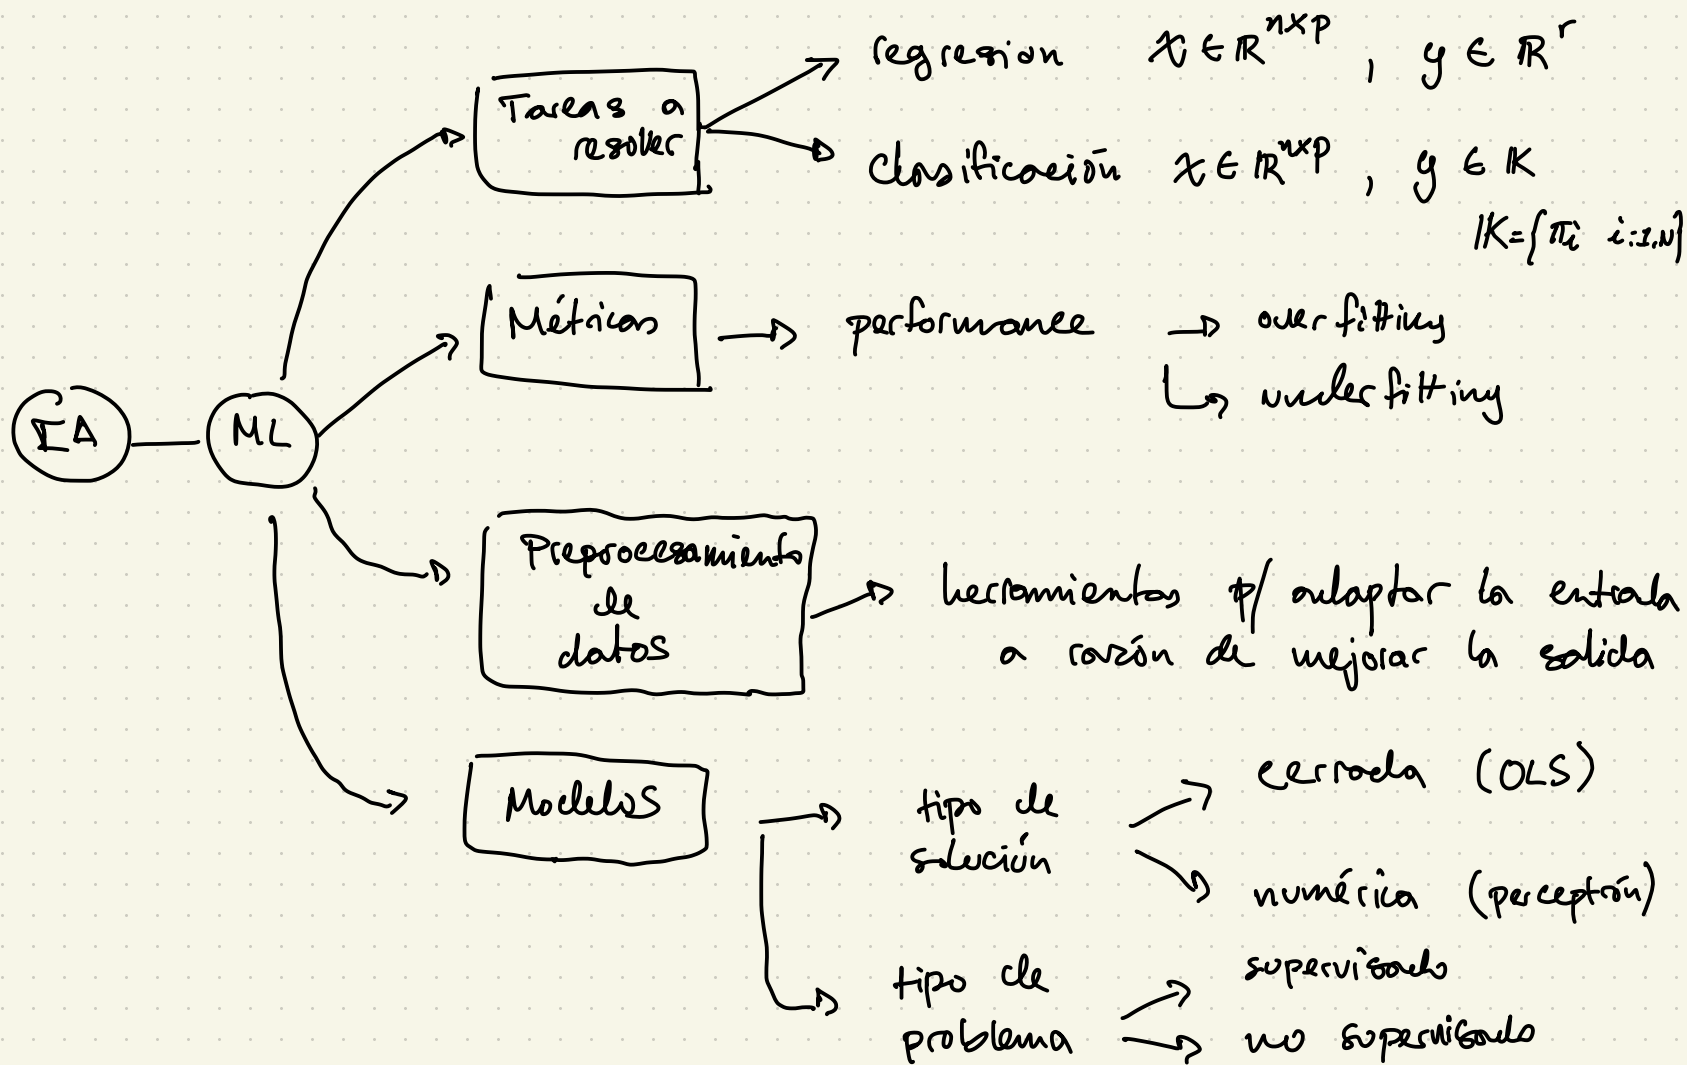 IA
ML
Tareas a
resolver
regresion x ∈ ℝ^{n×p} , y ∈ ℝ^r
Clasificación x ∈ ℝ^{n×p} , y ∈ 𝕂
𝕂={πi i:1,N}
Métricas
performance
overfitting
underfitting
Preprocesamiento
de
datos
herramientas p/ adaptar la entrada
a razón de mejorar la salida
Modelos
tipo de
solución
cerrada (OLS)
numérica (perceptrón)
tipo de
problema
supervisado
no supervisado